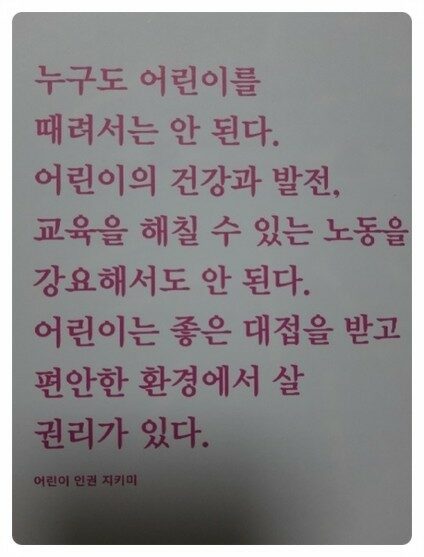 누구도 어린이를
때려서는 안 된다.
어린이의 건강과 발전,
교육을 해칠 수 있는 노동을
강요해서도 안 된다.
어린이는 좋은 대접을 받고
편안한 환경에서 살
권리가 있다.
어린이 인권 지키미